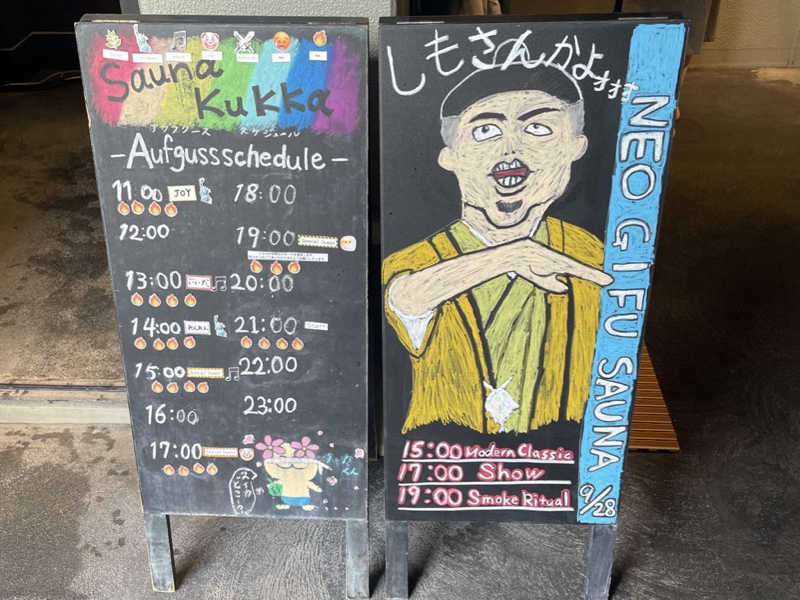 Sauna
Kukka
アウフグース スケジュール
-Aufgussschedule-
11:00 JOY
12:00
13:00
14:00
15:00
16:00
17:00
18:00
19:00 Special Guest
20:00
21:00 STAFF
22:00
23:00
しもさんかよォォォ
NEO GIFU SAUNA 9/28
15:00 Modern Classic
17:00 Show
19:00 Smoke Ritual